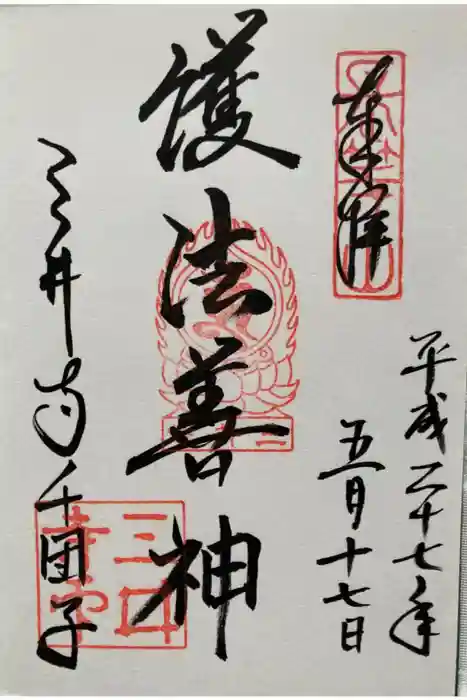 奉拝
平成二十七年
五月十七日
護法善神
三井寺千団子